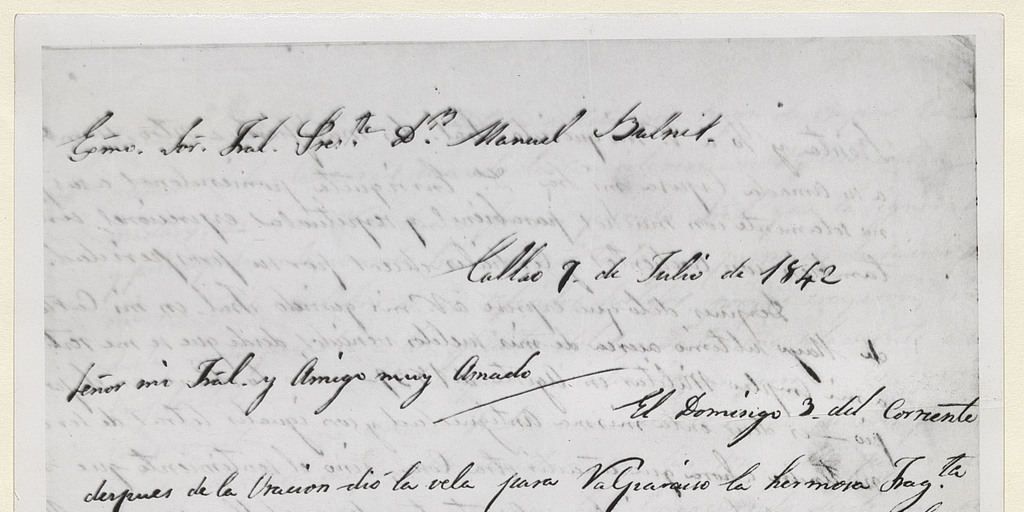 Exmo. Sor. Gral. Presᵗᵉ Dⁿ Manuel Bulnes.
Callao 7. de Julio de 1842
Señor mi Gral. y Amigo muy Amado
El Domingo 3. del Corriente
despues de la Oracion dió la vela para Valparaiso la hermosa Fragᵗᵃ